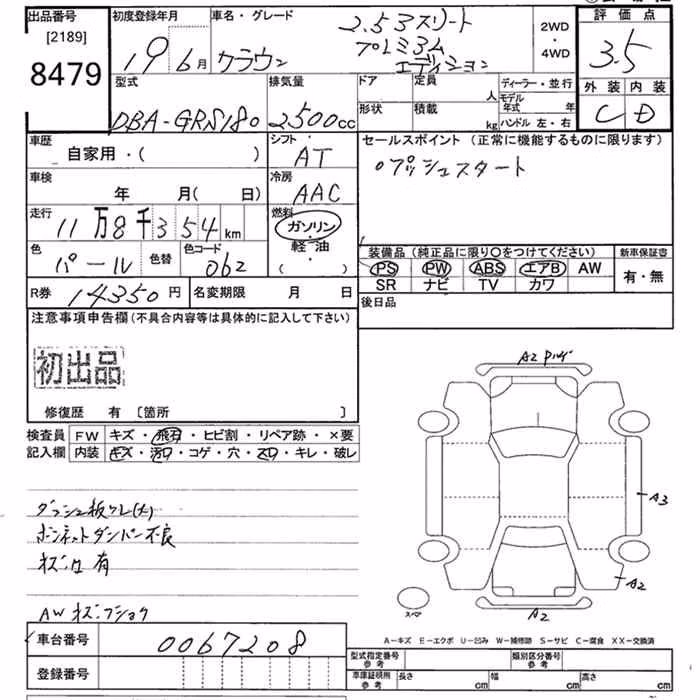 出品番号
[2189]
8479
初度登録年月
19 6月
車名・グレード
2.5 ストリート
プレミアム
エディション
クラウン
2WD
・
4WD
評価点
3.5
外装 内装
C D
型式
DBA-GRS180
排気量
2500cc
ドア
定員
人
形状
積載
kg
ディーラー・並行
モデル年式 年
ハンドル 左・右
車歴
自家用・( )
シフト
AT
車検
年 月( 日)
冷房
AAC
走行
11万8千354km
燃料
ガソリン
・
軽・油
( )
色
パール
色替
色コード
062
R券 14350円
名変期限 月 日
セールスポイント (正常に機能するものに限ります)
○プッシュスタート
装備品 (純正品に限り○をつけてください)
PS PW ABS エアB AW
SR ナビ TV カワ
新車保証書
有・無
後日品
注意事項申告欄(不具合内容等は具体的に記入して下さい)
初出品
修復歴 有 〔箇所 〕
検査員
記入欄
FW キズ・飛石・ヒビ割・リペア跡・×要
内装 キズ・汚レ・コゲ・穴・スレ・キレ・破レ
ダッシュ板ワレ(大)
ボンネットダンパー不良
有
AW
A2
A3
A2
A2
スペア
A-キズ E-エクボ U-凹み W-補修跡 S-サビ C-腐食 XX-交換済
車台番号 0067208
登録番号
型式指定番号
参考
類別区分番号
参考
車庫証明用
参考
長さ cm
幅 cm
高さ cm